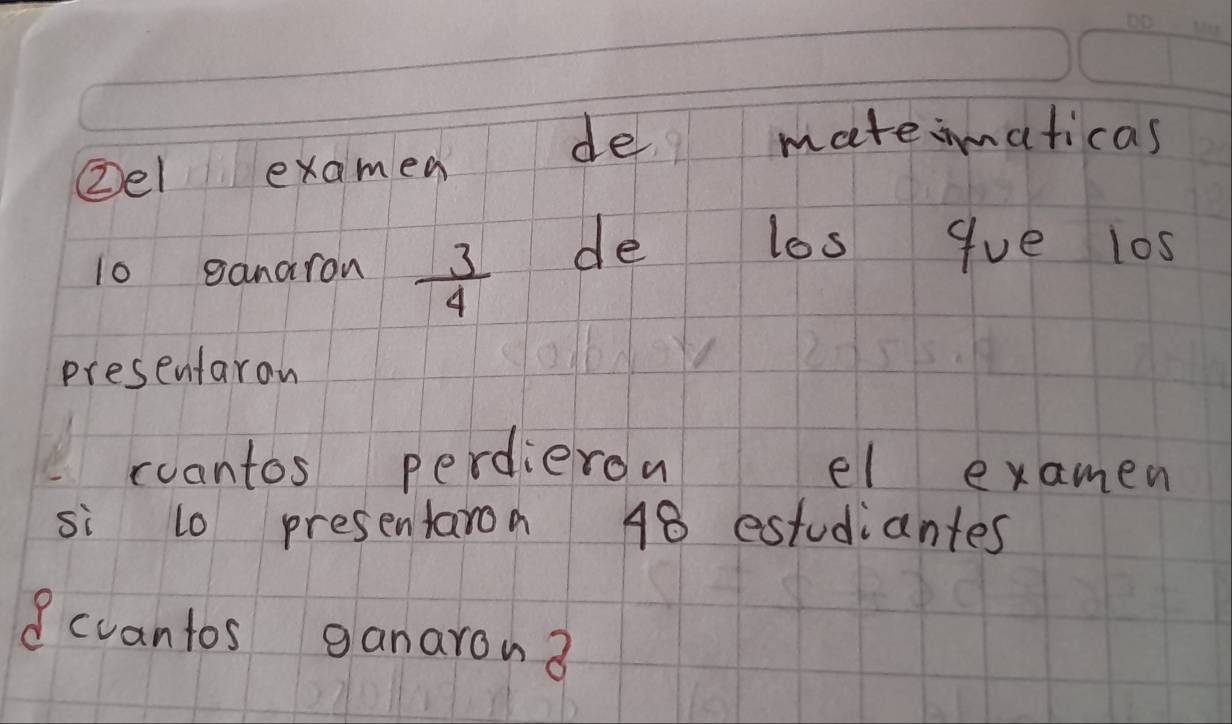 ② el examen de mateimaticas
lo ganaron 3/4 de los que los
presentaron
- cuantos perdieron el examen
si lo presentaron 48 estudiantes
¿cuantos ganaron?